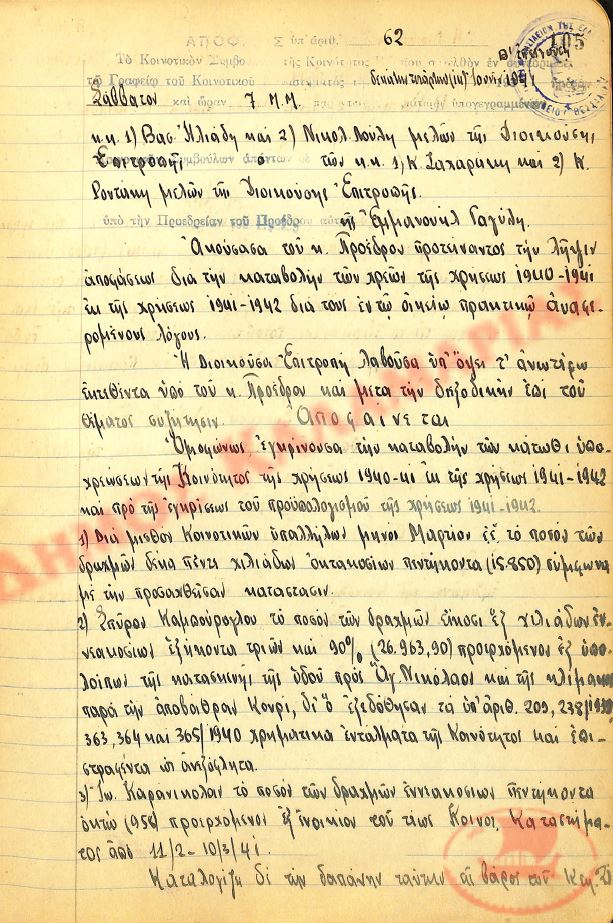 ΑΠΟΦ. Σ ὑπ' ἀριθ. 62
105
Τὸ Κοινοτικὸν Συμβο τῆς Κοινότητος που συνελθὸν ἐν συνεδρ
τῷ Γραφείῳ τοῦ Κοινοτικοῦ
Σάββατον καὶ ὥραν 7 Μ.Μ. ὑπογεγραμμένων
κ.κ. 1) Βασ. Ἡλιάδη καὶ 2) Νικολ. Πούλη μελῶν τῆς Διοικούσης
Ἐπιτροπῆς Συμβούλων ἀπόντων δὲ τῶν κ.κ. 1) Κ. Σαχαρίκη καὶ 2) Κ.
Ροντάκη μελῶν τῆς Διοικούσης Ἐπιτροπῆς.
ὑπὸ τὴν Προεδρείαν τοῦ Προέδρου αὐτῆς Ἐμμανουὴλ Γαγύλη.
Ἀκούσασα τοῦ κ. Προέδρου προτείναντος τὴν λῆψιν
ἀποφάσεως διὰ τὴν καταβολὴν τῶν χρεῶν τῆς χρήσεως 1940-1941
ἐκ τῆς χρήσεως 1941-1942 διὰ τους ἐν τῷ οἰκείῳ πρακτικῷ ἀναφε-
ρομένους λόγους.
Ἡ Διοικοῦσα Ἐπιτροπὴ λαβοῦσα ὑπ' ὄψει τ' ἀνωτέρω
ἐκτεθέντα ὑπὸ τοῦ κ. Προέδρου καὶ μετὰ τὴν διεξοδικὴν ἐπὶ τοῦ
θέματος συζήτησιν. Ἀποφαίνεται
Ὁμοφώνως ἐγκρίνουσα τὴν καταβολὴν τῶν κάτωθι ὑπο-
χρεώσεων τῆς Κοινότητος τῆς χρήσεως 1940-41 ἐκ τῆς χρήσεως 1941-1942
καὶ πρὸ τῆς ἐγκρίσεως τοῦ προϋπολογισμοῦ τῆς χρήσεως 1941-1942.
1) Διὰ μισθὸν Κοινοτικῶν ὑπαλλήλων μηνὸς Μαρτίου ἐ.ἔ. τὸ ποσὸν τῶν
δραχμῶν δέκα πέντε χιλιάδων ὀκτακοσίων πεντήκοντα (15.850) σύμφωνα
με τὴν προσαχθεῖσαν κατάστασιν.
2) Σπῦρον Καμπούρογλου τὸ ποσὸν τῶν δραχμῶν εἴκοσι ἓξ χιλιάδων ἐν-
νεακοσίων ἑξήκοντα τριῶν καὶ 90% (26.963,90) προερχόμενος ἐξ ὑπο-
λοίπων τῆς κατασκευῆς τῆς ὁδοῦ πρὸς Ἅγ. Νικόλαον καὶ τῆς κλίμακος
παρὰ τὴν ἀποβάθραν Κονρι, δι' ὃ ἐξεδόθησαν τὰ ὑπ' ἀριθ. 209, 238/1939
363, 364 καὶ 365/1940 χρηματικὰ ἐντάλματα τῆς Κοινότητος καὶ ἐπι-
στραφέντα ὡς ἀνεξόφλητα.
3) Ἰω. Καρανικόλαν τὸ ποσὸν τῶν δραχμῶν ἐννεακοσίων πεντήκοντα
ὀκτὼ (958) προερχόμενον ἐξ ἐνοικίου τοῦ τέως Κοινοτ. Καταστήμα-
τος ἀπὸ 11/2-10/3/41.
Καταλογίζει δὲ τὴν δαπάνην ταύτην εἰς βάρος τοῦ
ΔΗΜΟΣ ΚΑΛΑΜΑΡΙΑΣ